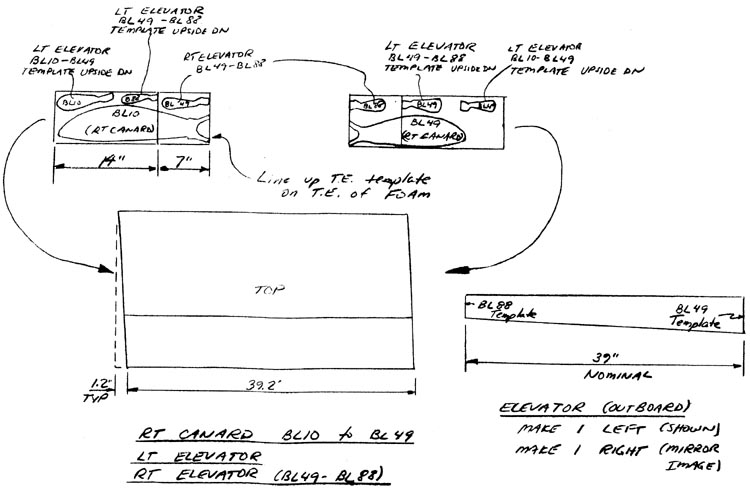 LT ELEVATOR
BL49-BL88
TEMPLATE UPSIDE DN
LT ELEVATOR
BL10-BL49
TEMPLATE UPSIDE DN
RT ELEVATOR
BL49-BL88
LT ELEVATOR
BL49-BL88
TEMPLATE UPSIDE DN
LT ELEVATOR
BL10-BL49
TEMPLATE UPSIDE DN
BL10
B88
BL49
BL10
(RT CANARD)
BL88
BL49
BL49
(RT CANARD)
14"
7"
Line up T.E. template
on T.E. of FOAM
TOP
1.2"
TYP
39.2"
BL88
Template
BL49
Template
39"
NOMINAL
RT CANARD BL10 to BL49
LT ELEVATOR
RT ELEVATOR (BL49-BL88)
ELEVATOR (OUTBOARD)
MAKE 1 LEFT (SHOWN)
MAKE 1 RIGHT (MIRROR
IMAGE)